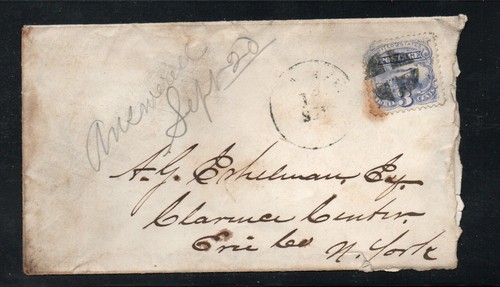 Answered
Sept 20
A.G. Eshelman, Esq.
Clarence Center.
Erie Co
N. York
POSTAGE